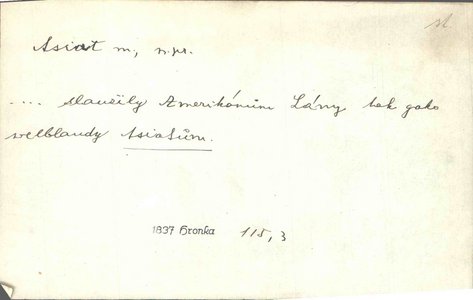 st.
Asiat m, n.pr.
.... slaučily Amerikónům Lámy tak gako
welblaudy Asiatům.
1837 Hronka 115, 3